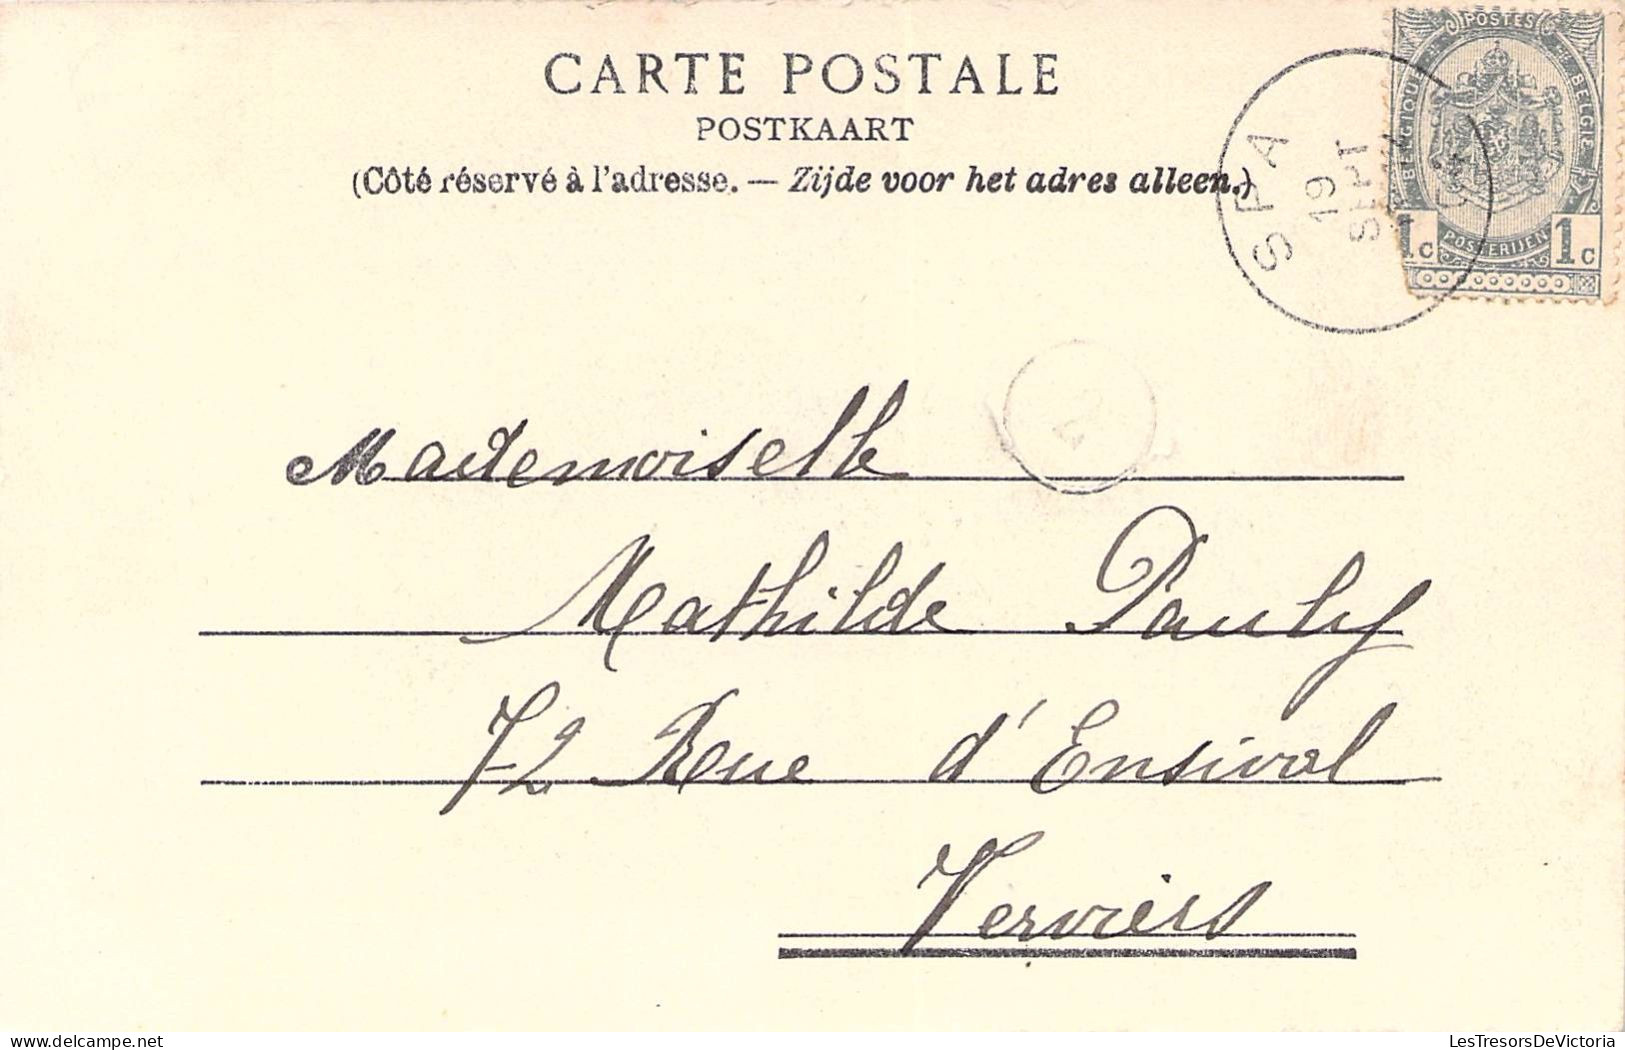 CARTE POSTALE
POSTKAART
(Côté réservé à l'adresse. — Zijde voor het adres alleen.)
SPA
19
SEPT
POSTES
BELGIQUE
BELGIE
POSTERIJEN
1c 1c
Mademoiselle
Mathilde Pauly
72 Rue d'Ensival
Verviers
LesTresorsDeVictoria